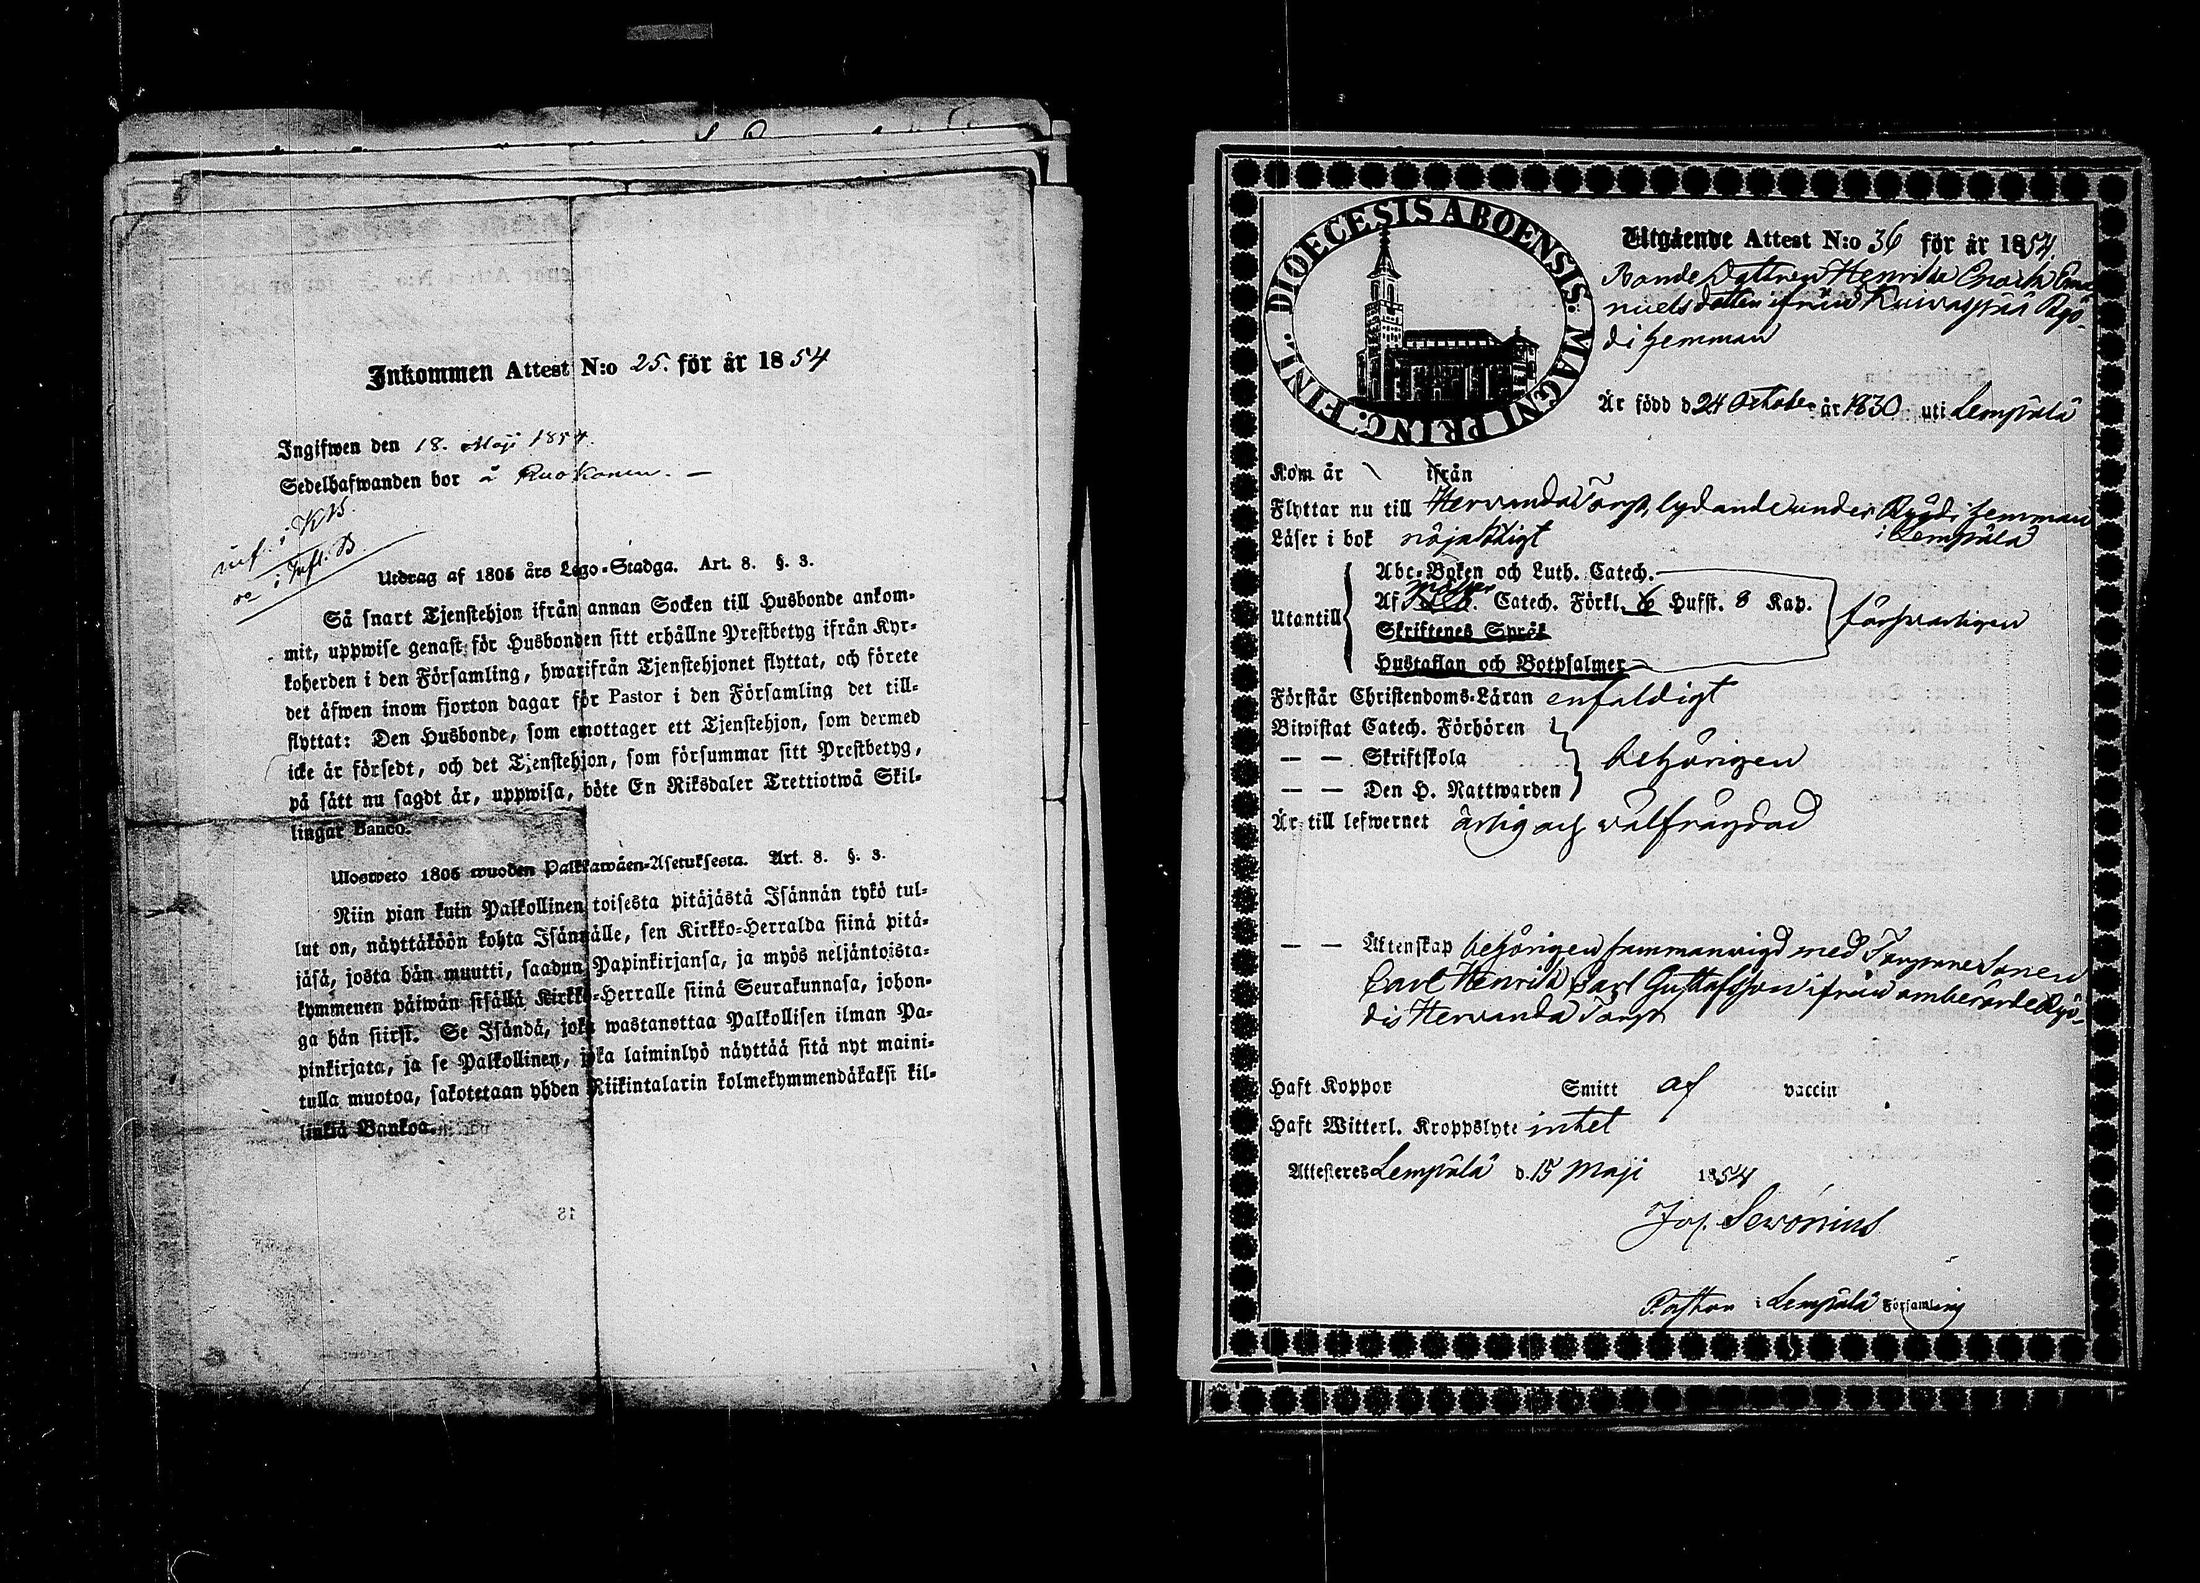 Inkommen Attest N:o 25. för år 1854
Ingifwen den 18. Maji 1854.
Sedelhafwanden bor å Ruokonen. —
inf. i KB.
i Infl. B.
Utdrag af 1805 års Lego-Stadga. Art. 8. §. 3.
Så snart Tjenstehjon ifrån annan Socken till Husbonde ankom-
mit, uppwise genast för Husbonden sitt erhållne Prestbetyg ifrån Kyr-
koherden i den Församling, hwarifrån Tjenstehjonet flyttat, och förete
det äfwen inom fjorton dagar för Pastor i den Församling det till-
flyttat: Den Husbonde, som emottager ett Tjenstehjon, som dermed
icke är försedt, och det Tjenstehjon, som försummar sitt Prestbetyg,
på sätt nu sagdt är, uppwisa, böte En Riksdaler Trettiotwå Skil-
lingar Banco.
Ulosweto 1805 wuoden Palkkawäen-Asetuksesta. Art. 8. §. 3.
Niin pian kuin Palkollinen toisesta pitäjästä Isännän tykö tul-
lut on, näyttäköön kohta Isännälle, sen Kirkko-Herralda siinä pitä-
jäsä, josta hän muutti, saadun Papinkirjansa, ja myös neljäntoista-
kymmenen päiwän sisällä Kirkko-Herralle siinä Seurakunnasa, johon-
ga hän siirsi. Se Isändä, joka wastanottaa Palkollisen ilman Pa-
pinkirjata, ja se Palkollinen, joka laiminlyö näyttää sitä nyt maini-
tulla muotoa, sakotetaan yhden Riikintalarin kolmekymmendäkaksi kil-
linkiä Bankoa.
DIOECESIS ABOENSIS. MAGNI PRINC. FINL.
Utgående Attest N:o 36 för år 1854.
Bonde Dottren Henrika Enoch Ema
nuels dotter ifrån Kuivaspää Ryö-
di hemman
Är född d 24 October år 1830 uti Lempälä
Kom år ifrån
Flyttar nu till Hervanda Torp, lydande under Ryödi hemman
Läser i bok nöjaktigt i Lempälä
Utantill
Abc-Boken och Luth. Catech.
Af Catech. Förkl. 6 Hufst. 8 Kap. försvarligen
Skriftenes Språk
Hustaflan och Botpsalmer
Förstår Christendoms-Läran enfaldigt
Biwistat Catech. Förhören
— — Skriftskola behörigen
— — Den H. Nattwarden
Är till lefwernet ärlig och välfrägdad
— — Äktenskap behörigen sammanvigd med Torparesonen
Carl Henrik Carl Gustafsson ifrån omberörde Ryö-
dis Hervanda Torp
Haft Koppor Smitt af vaccin
Haft Witterl. Kroppslyte intet
Attesteres Lempälä d. 15 Maji 1854
Jos. Serónius
Pastor i Lempälä Församling